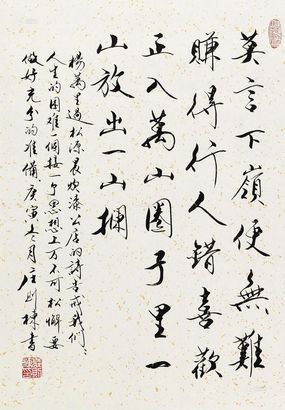 莫言下嶺便無難
賺得行人錯喜歡
正入萬山圈子里一
山放出一山攔
楊萬里過松源晨炊漆公店的詩告戒我們
人生的困難個接一个思想上万不可松懈要
做好充分的準備庚寅月庄則棟書